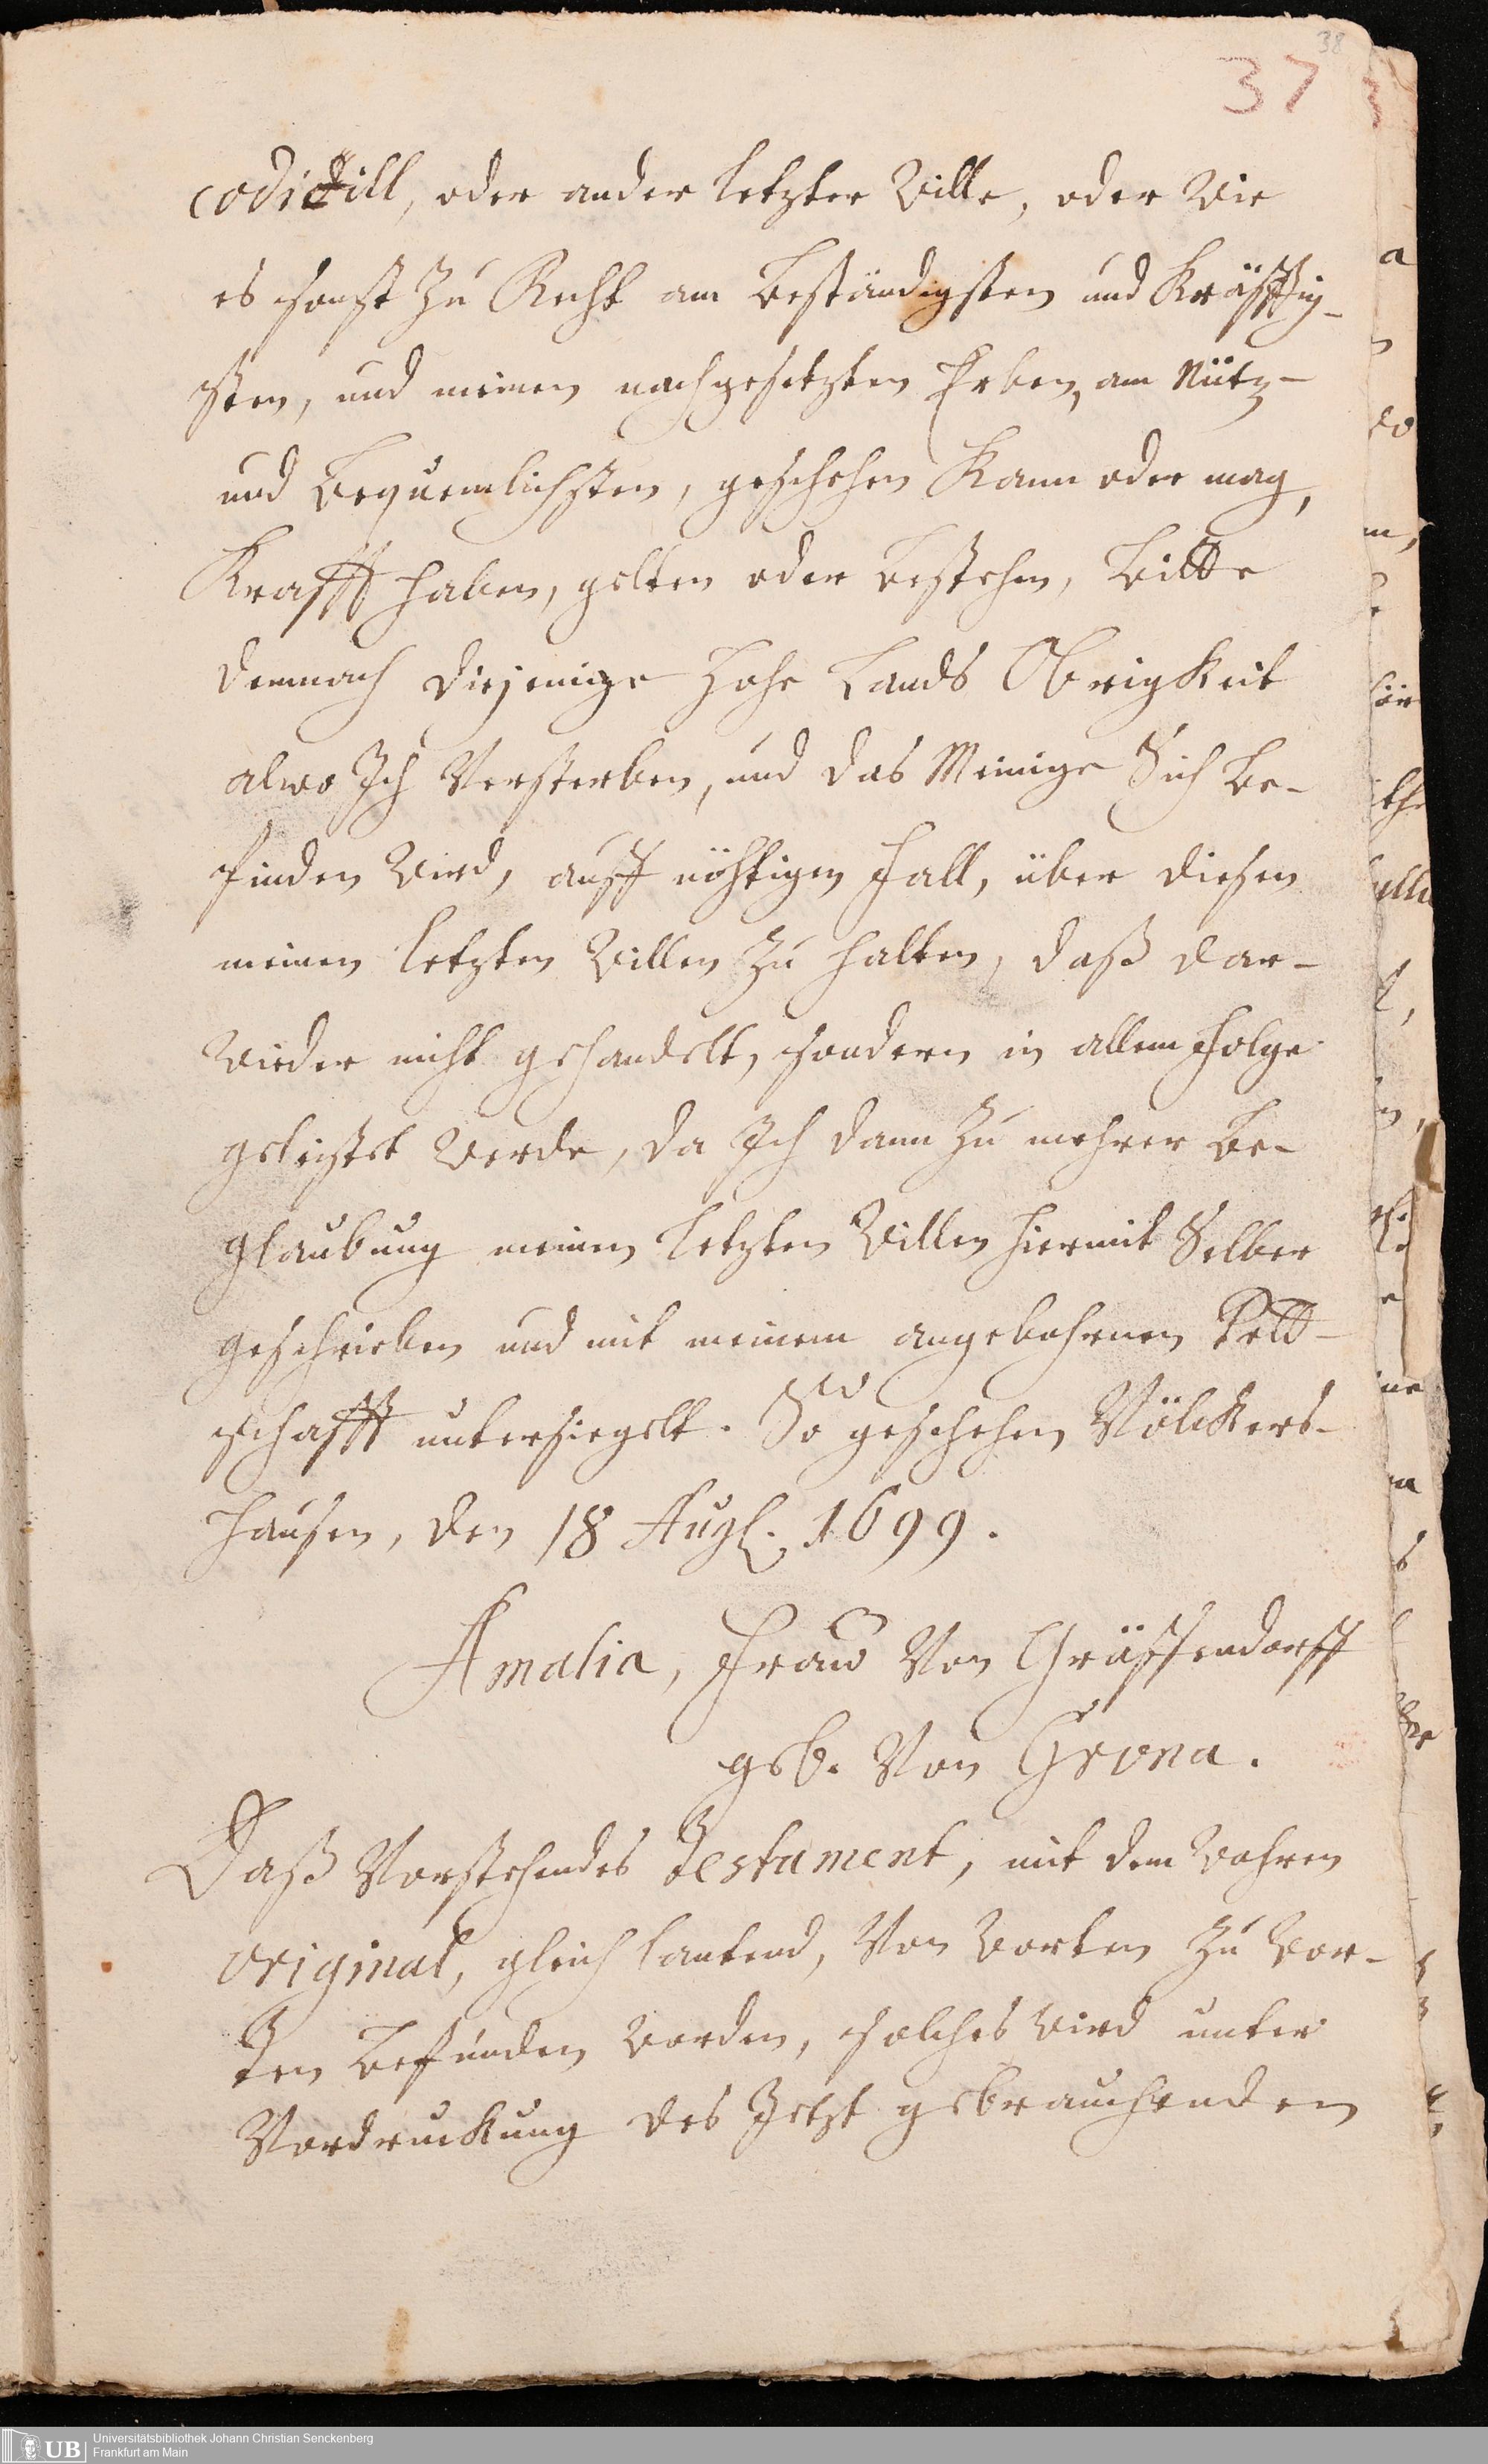 38
37
codicill, oder ander letzter Wille, oder Wie
es sonst zu Recht am Beständigsten und Kräfftig-
sten, und meinen nachgesetzten Erben, am Nütz-
und Bequemlichsten, geschehen Kann oder mag,
Krafft haben, gelten oder bestehen, Bitte
demnach diejenige Hohe Lands Obrigkeit
alwo Ich Versterben, und das Meinige Sich be-
finden Wird, auff nöhtigen fall, über diesen
meinen letzten Willen zu halten, daß dar-
wieder nicht gehandelt, sondern in allem folge
geleistet Werde, da Ich dann zu mehrer Be-
glaubung meinen letzten Willen hiermit Selber
geschrieben und mit meinem angebohrnen Pett-
schafft untersiegelt. So geschehen Völckers-
hausen, den 18 Aug. 1699.
Amalia, Fraw Von Gräffendorff
geb. Von Grona.
Daß Vorstehendes Testament, mit dem Wahren
original, gleich lautend, Von Worten zu Wor-
ten befunden Worden, solches Wird unter
Vordruckung des Jetzt gebrauchenden
UB
Universitätsbibliothek Johann Christian Senckenberg
Frankfurt am Main